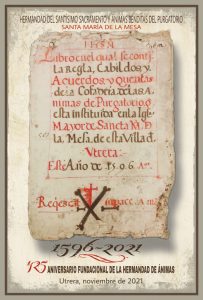 HERMANDAD DEL SANTÍSIMO SACRAMENTO Y ÁNIMAS BENDITAS DEL PURGATORIO
SANTA MARÍA DE LA MESA
Libro en el qual se conti
la Regla, Cabildos y
Acuerdos y Quentas
de la Cofradia de las A
nimas de Purgatorio q
esta instituida en la Igle
Mayor de Sancta M. D
la Mesa, de esta Villa d
Vtrera.
Este Año de 1506 Aº
1596-2021
425 ANIVERSARIO FUNDACIONAL DE LA HERMANDAD DE ÁNIMAS
Utrera, noviembre de 2021